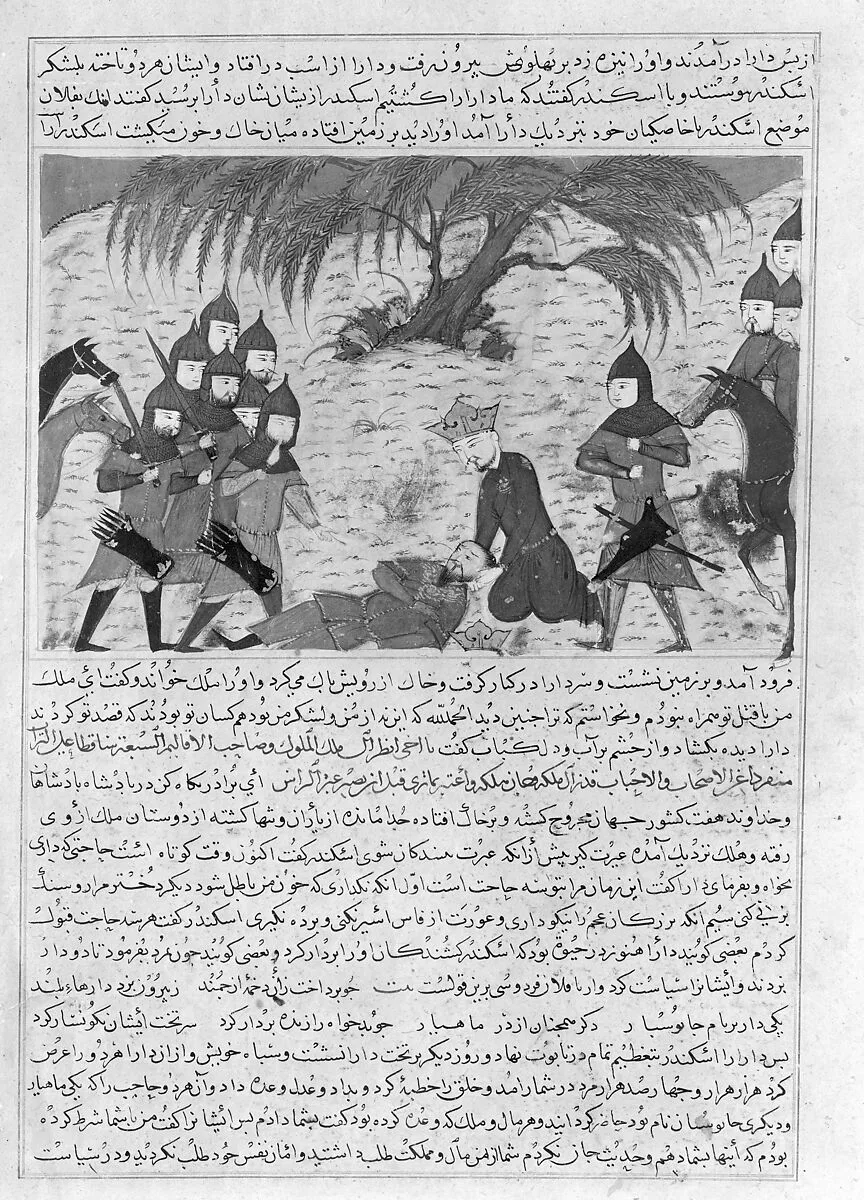 از پس دارا درآمدند و او را نیزه زد بر پهلویش بیرون رفت و دارا از اسب در افتاد و ایشان هر دو تاختند بلشکر
اسکندر پیوستند و با اسکندر گفتند که ما دارا را کشتیم اسکندر از یشان نشان دارا برسید گفتند اینک بفلان
موضع اسکندر با خاصکیان خود نزدیك دارا آمد او را دید بر زمین افتاده میان خاك و خون میکشت اسکندر آنجا
فرود آمد و بر زمین نشست و سر دارا در کنار کرفت و خاك از رویش باك می کرد و او را ملك خواند و کفت ای ملك
من با قتل تو همراه نبودم و نخواستم که ترا چنین دید الحمدلله که این نه از من و لشکر من بود هم کسان تو بودند که قصد تو کردند
دارا دیده بکشاد و از چشم بر آب و دل کباب کفت یا اخی انظر الی ملك الملوك و صاحب الاقالیم السبعة
منفردا عن الاصحاب والاحباب ای برادر نکاه کن در بادشاه بادشاهان
و خداوند هفت کشور جهان مجروح کشته و بر خاك افتاده جدا مانده از یاران و تنها کشته از دوستان ملك از وی
رفته و هلك نزدیك آمده عبرت کیر پیش از انکه عبرت بینندکان شوی اسکندر کفت اکنون وقت کوتاه است حاجتی که داری
بخواه و بفرمای دارا کفت این زمان مرا بتو سه حاجت است اول انکه نکذاری که خون من باطل شود دیکر دختر مرا روشنك
بزنی کنی سیم انکه بزرکان عجم را نیکو داری و عورت از فارس اسیر نکنی و برده نکیری اسکندر کفت هر سه حاجت قبول
کردم بعضی کویند دارا هنوز در حیوة بود که اسکندر کشندکان او را بر دار کرد و بعضی کویند چون بمرد بفرمود تا دو دار
بزدند و ایشانرا سیاست کرد و فردوسی برین قولست بیت جو برداخت زان دخمۀ ارجمند ز بیرون بزد دارهاء بلند
یکی دار بر نام جانوسیار دکر همچنان از در ماهیار دو بدخواه را زنده بر دار کرد سر تخت ایشان نکونسار کرد
بس دارا را اسکندر بتعظیم تمام در تابوت نهاد و روز دیکر بر تخت دارا نشست و سباه خویش و از آن دارا هر دو را عرض
کرد هزار هزار و چهار صد هزار مرد در شمار آمد و خلق را خطبه کرد و بداد و عدل وعده داد و آن هر دو حاجب را که یکی ماهیار
و دیکری جانوسیار نام بود حاضر کردانید و هر مال و ملك که وعده کرده بود کفت بشما دادم بس ایشانرا کفت من با شما شرط کرده
بودم که اینها بشما دهم و حدیث جان نکردم شما از من مال و مملکت طلب داشتید و امان نفس خود طلب نکردید و در سیاست